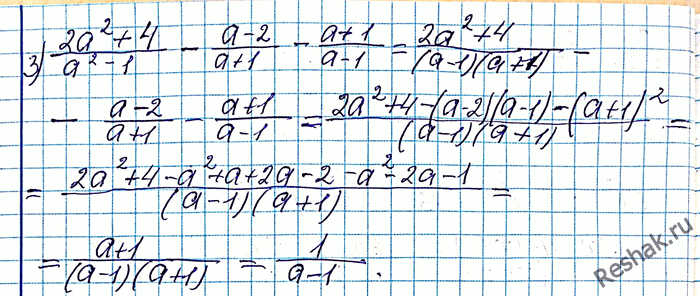 3) \frac{2a^2+4}{a^2-1} - \frac{a-2}{a+1} - \frac{a+1}{a-1} = \frac{2a^2+4}{(a-1)(a+1)} -
- \frac{a-2}{a+1} - \frac{a+1}{a-1} = \frac{2a^2+4-(a-2)(a-1)-(a+1)^2}{(a-1)(a+1)} =
= \frac{2a^2+4-a^2+a+2a-2-a^2-2a-1}{(a-1)(a+1)} =
= \frac{a+1}{(a-1)(a+1)} = \frac{1}{a-1}.
Reshak.ru